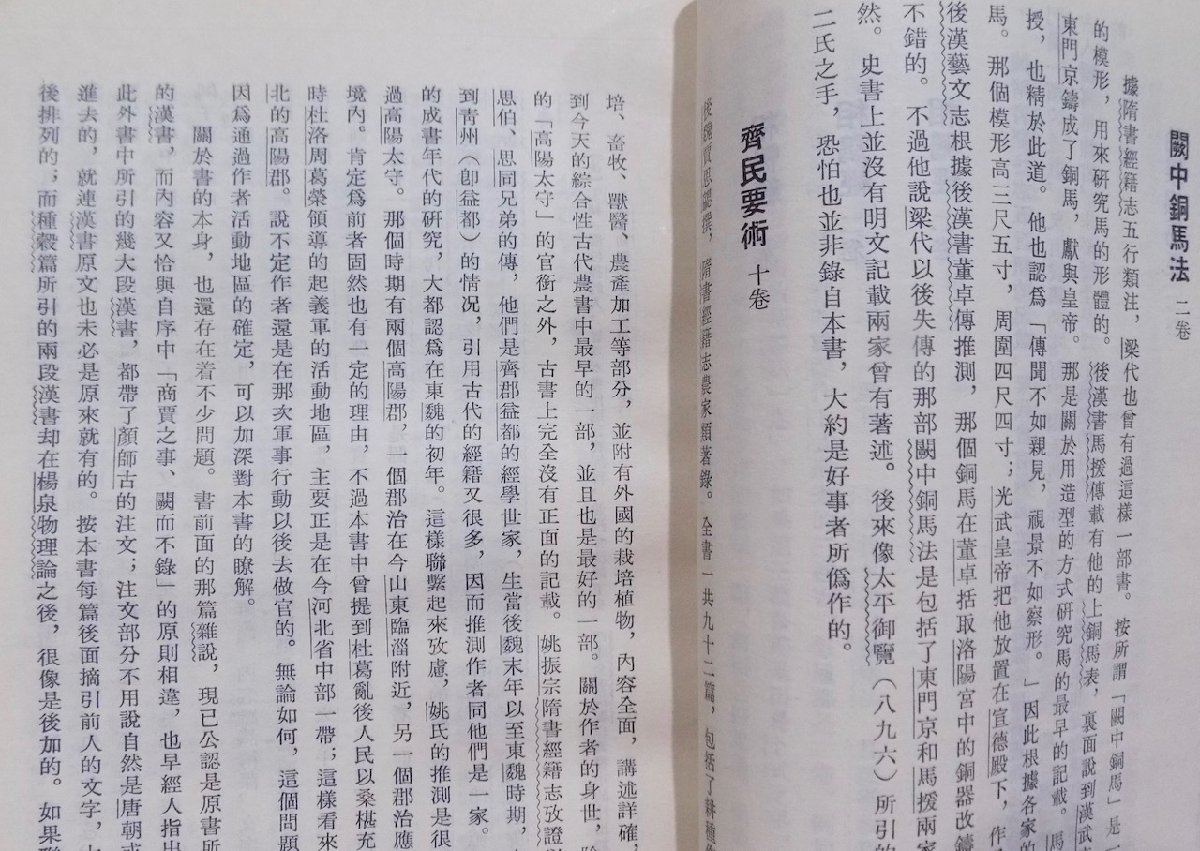 闕中銅馬法 二卷
據隋書經籍志五行類注，梁代也曾有過這樣一部書。按所謂「闕中銅馬」是一
的模形，用來研究馬的形體的。後漢書馬援傳載有他的上銅馬表，裏面說到漢武
東門京鑄成了銅馬，獻與皇帝。那是關於用造型的方式研究馬的最早的記載。馬
授，也精於此道。他也認爲「傳聞不如親見，視景不如察形。」因此根據各家的
馬。那個模形高三尺五寸，周圍四尺四寸；光武皇帝把他放置在宣德殿下，作
後漢藝文志根據後漢書董卓傳推測，那個銅馬在董卓括取洛陽宮中的銅器改鑄
不錯的。不過他說梁代以後失傳的那部闕中銅馬法是包括了東門京和馬援兩家
然。史書上並沒有明文記載兩家曾有著述。後來像太平御覽（八九六）所引的
二氏之手，恐怕也並非錄自本書，大約是好事者所僞作的。
齊民要術 十卷
後魏賈思勰撰，隋書經籍志農家類著錄。全書一共九十二篇，包括了耕種
培、畜牧、獸醫、農產加工等部分，並附有外國的栽培植物，內容全面，講述詳確，
到今天的綜合性古代農書中最早的一部，並且也是最好的一部。關於作者的身世，除
的「高陽太守」的官銜之外，古書上完全沒有正面的記載。姚振宗隋書經籍志攷證
思伯、思同兄弟的傳，他們是齊郡益都的經學世家，生當後魏末年以至東魏時期，
到青州（卽益都）的情況，引用古代的經籍又很多，因而推測作者同他們是一家。
的成書年代的研究，大都認爲在東魏的初年。這樣聯繫起來攷慮，姚氏的推測是很
過高陽太守。那個時期有兩個高陽郡，一個郡治在今山東臨淄附近，另一個郡治應
境內。肯定爲前者固然也有一定的理由，不過本書中曾提到杜葛亂後人民以桑椹充
時杜洛周葛榮領導的起義軍的活動地區，主要正是在今河北省中部一帶；這樣看來
北的高陽郡。說不定作者還是在那次軍事行動以後去做官的。無論如何，這個問題
因爲通過作者活動地區的確定，可以加深對本書的瞭解。
關於書的本身，也還存在着不少問題。書前面的那篇雜說，現已公認是原書所
的漢書，而內容又恰與自序中「商賈之事、闕而不錄」的原則相違，也早經人指出
此外書中所引的幾大段漢書，都帶了顏師古的注文；注文部分不用說自然是唐朝或
進去的，就連漢書原文也未必是原來就有的。按本書每篇後面摘引前人的文字，
後排列的；而種穀篇所引的兩段漢書却在楊泉物理論之後，很像是後加的。如果